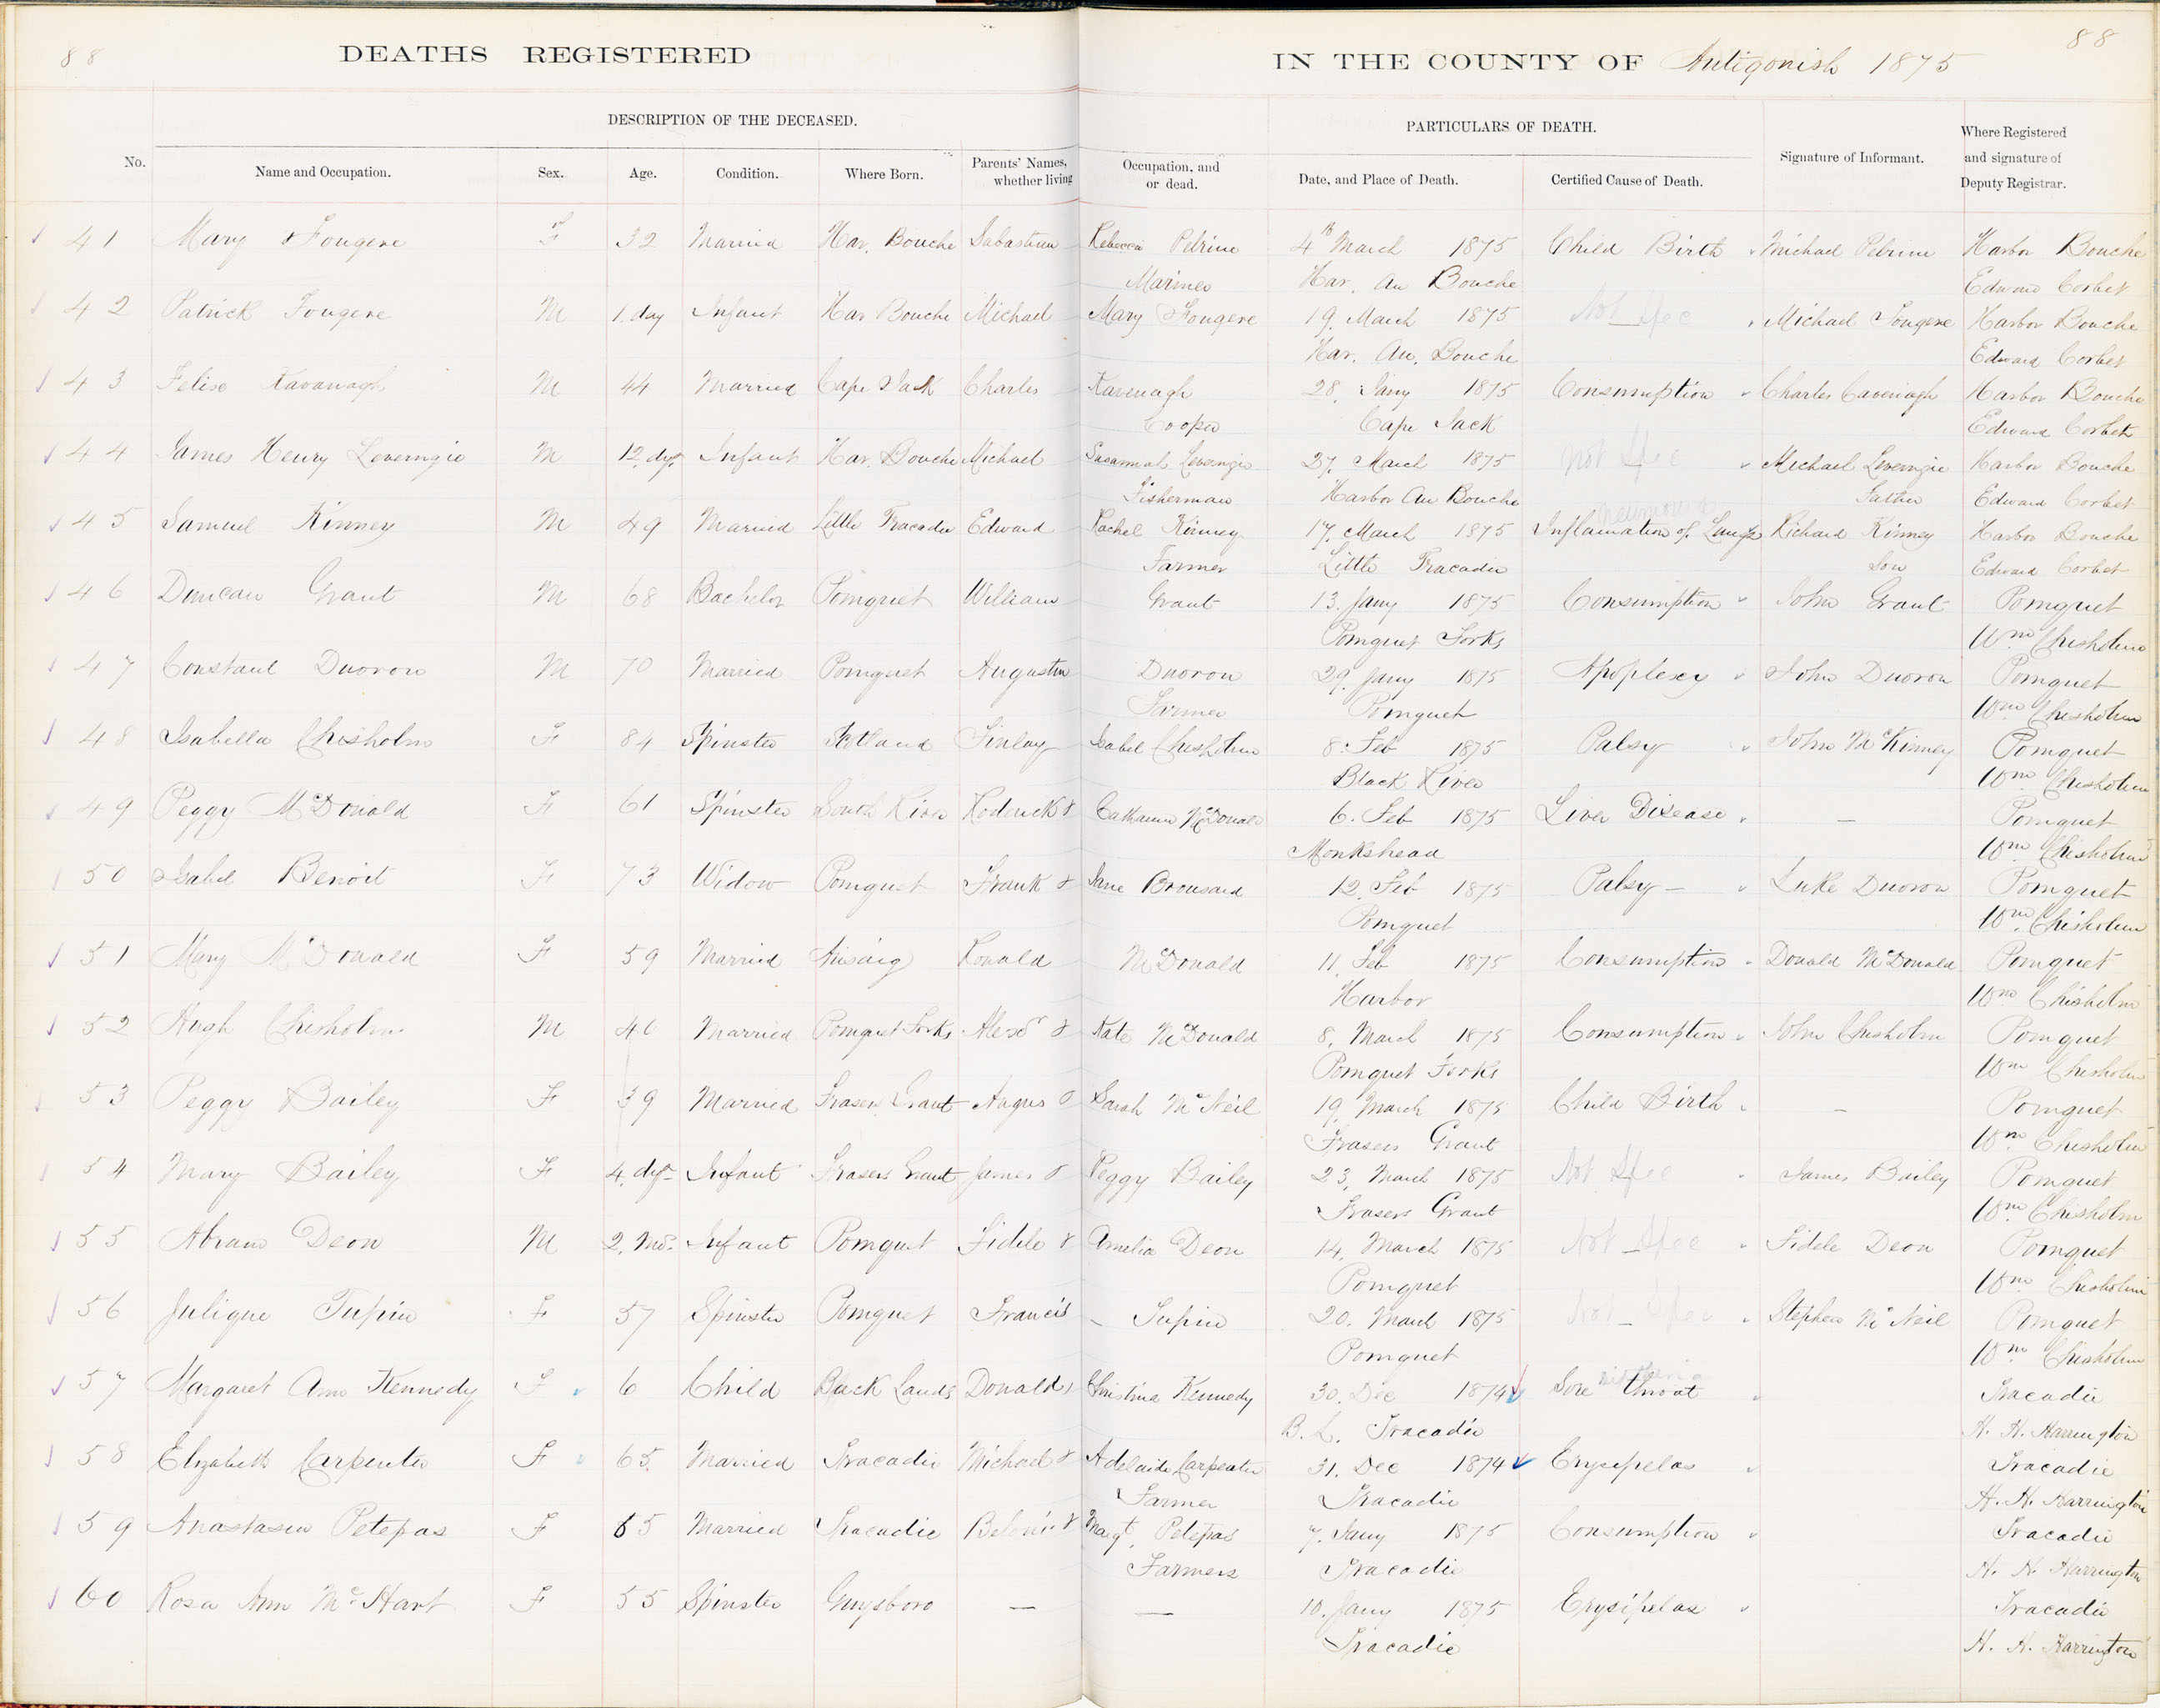 88
DEATHS REGISTERED
IN THE COUNTY OF Antigonish 1875
88
DESCRIPTION OF THE DECEASED.
PARTICULARS OF DEATH.
No. Name and Occupation. Sex. Age. Condition. Where Born. Parents' Names, whether living Occupation, and or dead. Date, and Place of Death. Certified Cause of Death. Signature of Informant. Where Registered and signature of Deputy Registrar.
41 Mary Fougere F 32 Married Har. Bouche Sabastian Rebecca Petrine 4th March 1875 Child Birth Michael Petrine Harbor Bouche
Mariner Har. Au Bouche Edward Corbet
42 Patrick Fougere M 1 day Infant Har Bouche Michael Mary Fougere 19, March 1875 Not Spec Michael Fougere Harbor Bouche
Har. Au. Bouche Edward Corbet
43 Felise Kavanagh M 44 Married Cape Jack Charles Kavenagh 28, Jany 1875 Consumption Charles Cavenagh Harbor Bouche
Cooper Cape Jack Edward Corbet
44 James Henry Leverngie M 12 dys Infant Har. Bouche Michael Susannah Leverngie 27, March 1875 Not Spec Michael Leverngie Harbor Bouche
Fisherman Harbor Au Bouche Father Edward Corbet
pneumonia
45 Samuel Kinney M 49 Married Little Tracadie Edward Rachel Kinney 17, March 1875 Inflamation of Lungs Richard Kinney Harbor Bouche
Farmer Little Tracadie Son Edward Corbet
46 Duncan Grant M 68 Bachelor Pomquet William Grant 13. Jany 1875 Consumption John Grant Pomquet
Pomquet Forks Wm Chisholm
47 Constant Duoron M 70 Married Pomquet Augustin Duoron 29, Jany 1875 Apoplexy John Duoron Pomquet
Farmer Pomquet Wm Chisholm
48 Isabella Chisholm F 84 Spinster Scotland Finlay Isabel Chisholm 8. Feb 1875 Palsy John McKinney Pomquet
Black River Wm Chisholm
49 Peggy McDonald F 61 Spinster South River Roderick & Catharine McDonald 6. Feb 1875 Liver Disease — Pomquet
Monkshead Wm Chisholm
50 Isabel Benoit F 73 Widow Pomquet Frank & Jane Brousard 12. Feb 1875 Palsy — Luke Duoron Pomquet
Pomquet Wm Chisholm
51 Mary McDonald F 59 Married Arisaig Ronald McDonald 11, Feb 1875 Consumption Donald McDonald Pomquet
Harbor Wm Chisholm
52 Hugh Chisholm M 40 Married Pomquet Forks Alexr & Kate McDonald 8, March 1875 Consumption John Chisholm Pomquet
Pomquet Forks Wm Chisholm
53 Peggy Bailey F 39 Married Frasers Grant Angus & Sarah McNeil 19, March 1875 Child Birth — Pomquet
Frasers Grant Wm Chisholm
54 Mary Bailey F 4 dys Infant Frasers Grant James & Peggy Bailey 23, March 1875 Not Spec James Bailey Pomquet
Frasers Grant Wm Chisholm
55 Abram Deon M 2, Mos. Infant Pomquet Fidele & Amelia Deon 14, March 1875 Not Spec Fidele Deon Pomquet
Pomquet Wm Chisholm
56 Julique Tupin F 57 Spinster Pomquet Francis Tupin 20. March 1875 Not Spec Stephen McNeil Pomquet
Pomquet Wm Chisholm
57 Margaret Ann Kennedy F 6 Child Black Lands Donald & Christina Kennedy 30, Dec 1874 Sore throat Tracadie
B. L. Tracadie H. H. Harrington
58 Elizabeth Carpenter F 65 Married Tracadie Michael & Adelaide Carpenter 31. Dec 1874 Erysipelas Tracadie
Farmer Tracadie H. H. Harrington
59 Anastasia Petepas F 65 Married Tracadie Belonie & Margt. Petepas 7, Jany 1875 Consumption Tracadie
Farmers Tracadie H. H. Harrington
60 Rosa Ann McHart F 55 Spinster Guysboro — — 10. Jany 1875 Erysipelas Tracadie
Tracadie H. H. Harrington